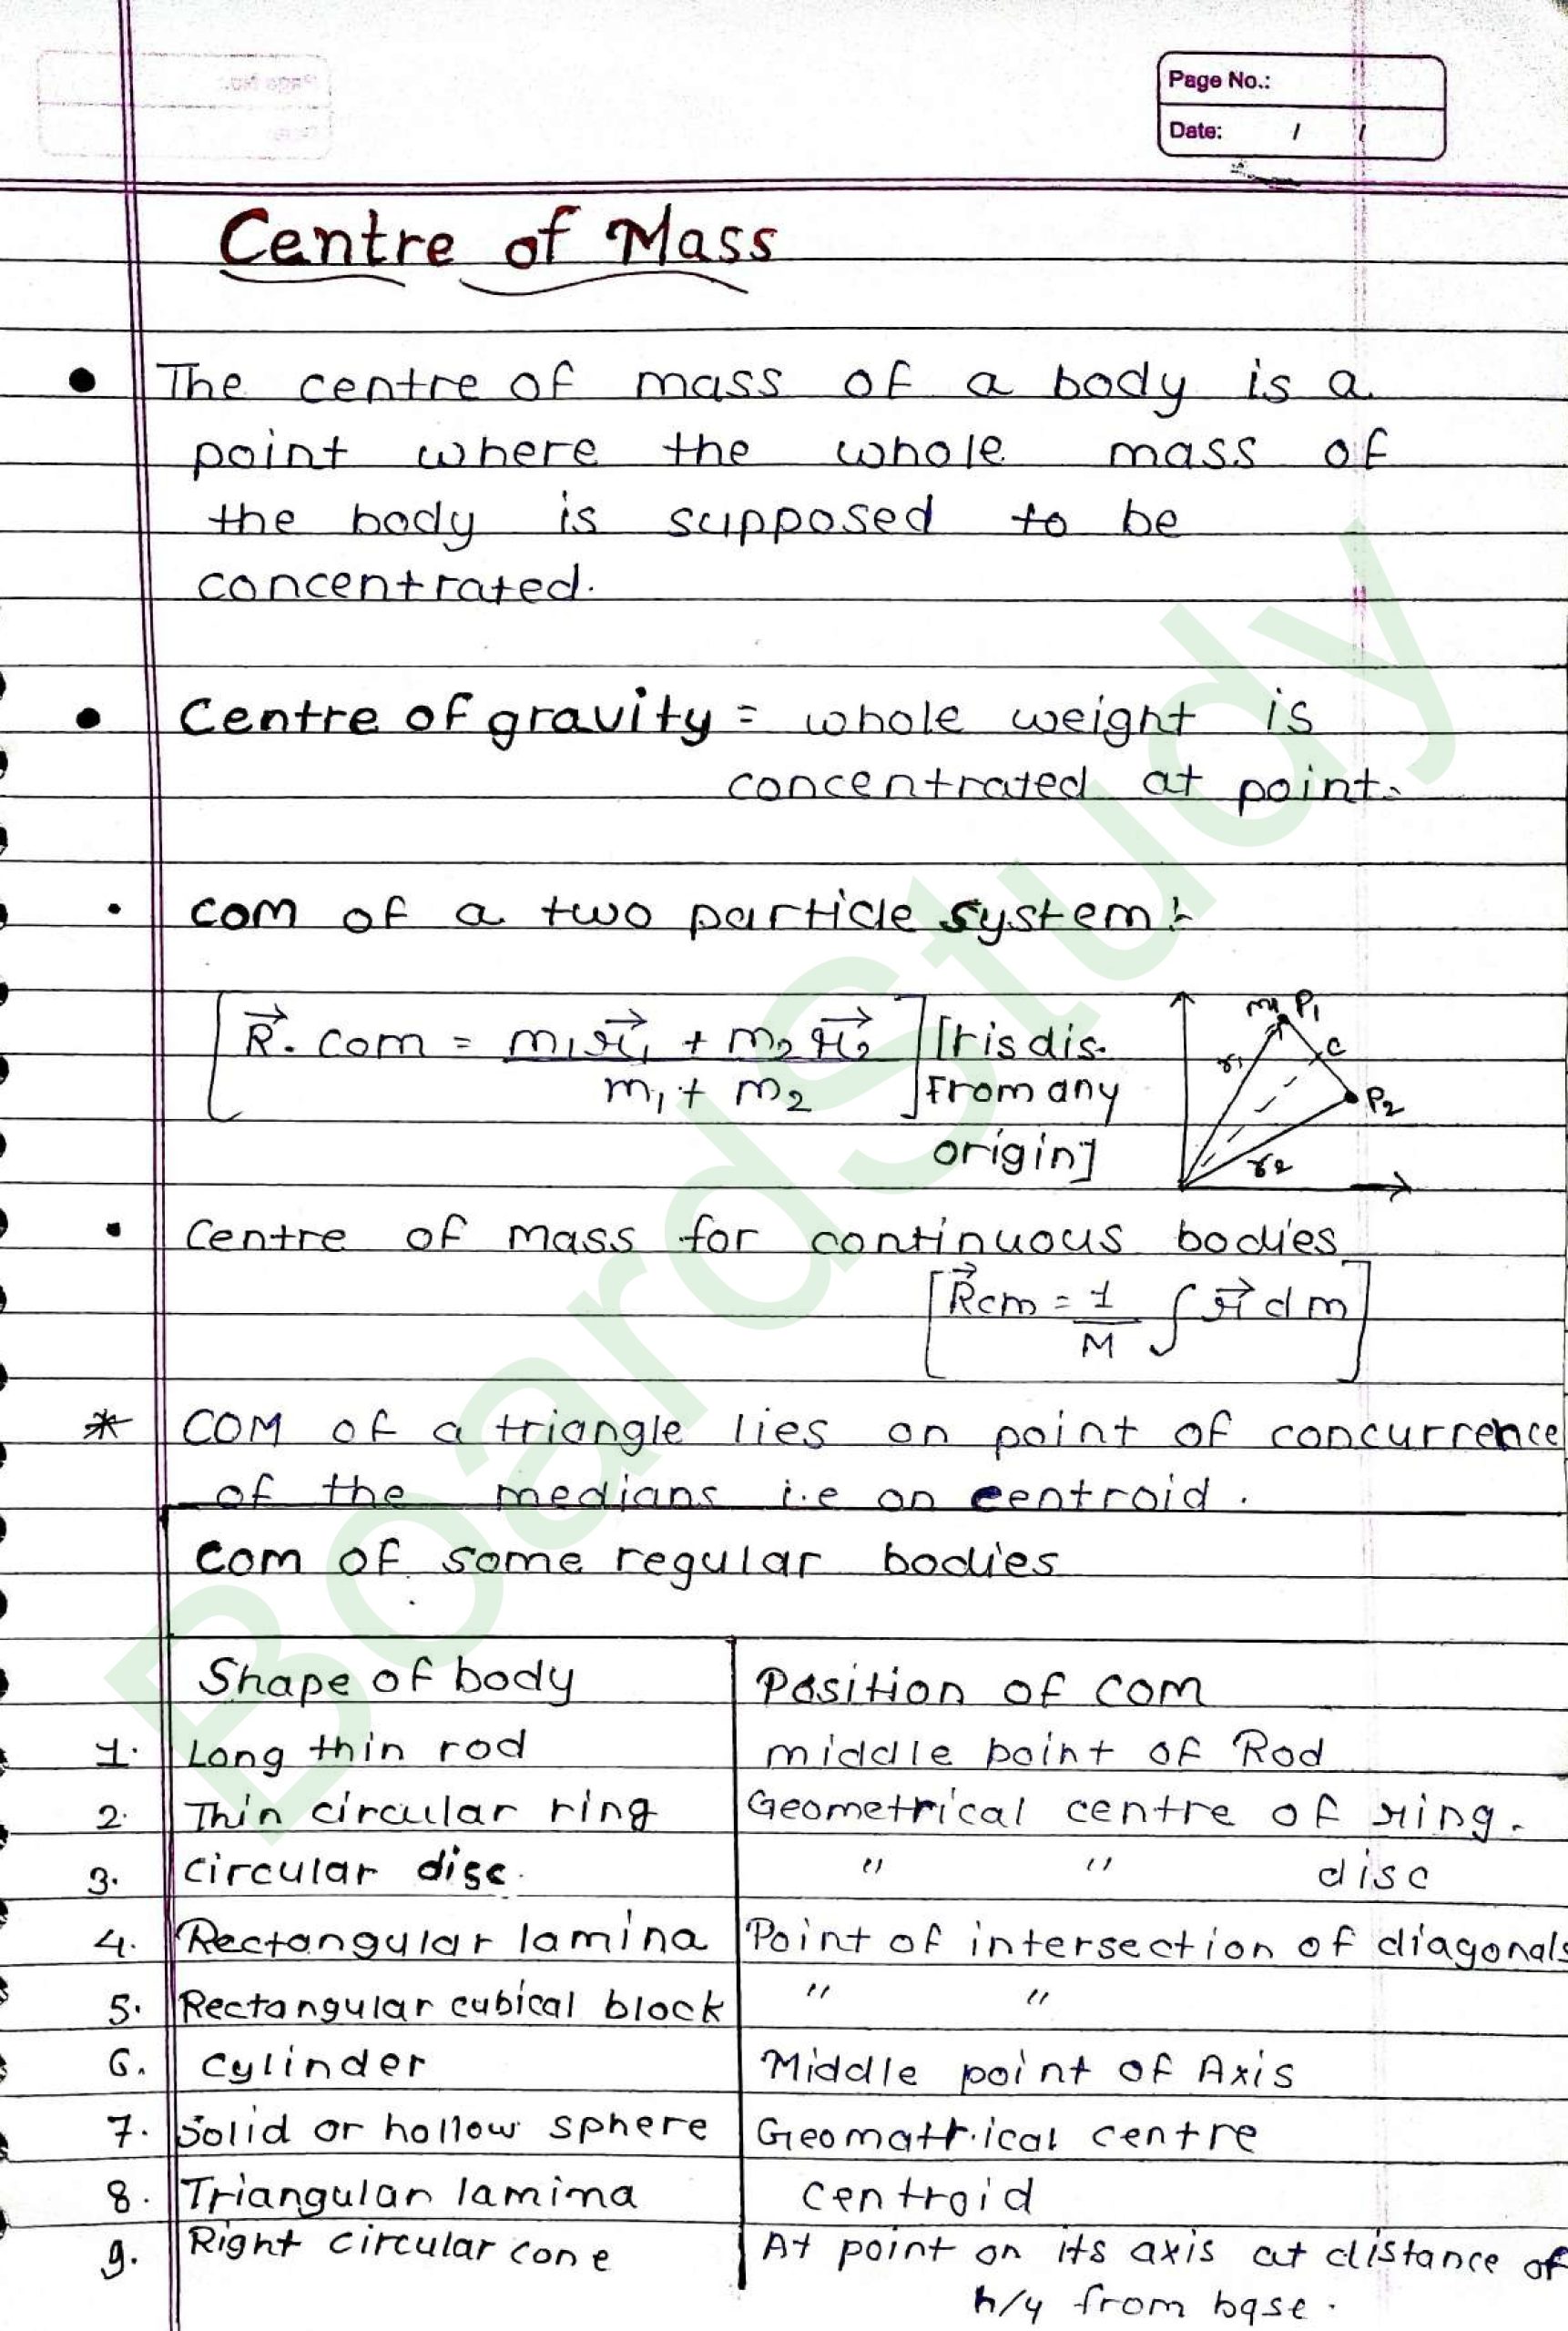 Page No.:
Date: / /
Centre of Mass
• The centre of mass of a body is a
point where the whole mass of
the body is supposed to be
concentrated.
• Centre of gravity = whole weight is
concentrated at point.
• COM of a two particle system:-
[R⃗. com = (m₁r⃗₁ + m₂r⃗₂)/(m₁ + m₂)] [r is dis.
from any
origin]
m₁ P₁
C
r₁
P₂
r₂
• Centre of mass for continuous bodies
[R⃗cm = 1/M ∫ r⃗ dm]
* COM of a triangle lies on point of concurrence
of the medians i.e on centroid.
COM of some regular bodies
Shape of body Position of COM
1. Long thin rod middle point of Rod
2. Thin circular ring Geometrical centre of ring.
3. circular disc. " " disc
4. Rectangular lamina Point of intersection of diagonals
5. Rectangular cubical block " "
6. cylinder Middle point of Axis
7. Solid or hollow sphere Geomattrical centre
8. Triangular lamina centroid
9. Right circular cone At point on its axis at distance of
h/4 from base.
BoardStudy